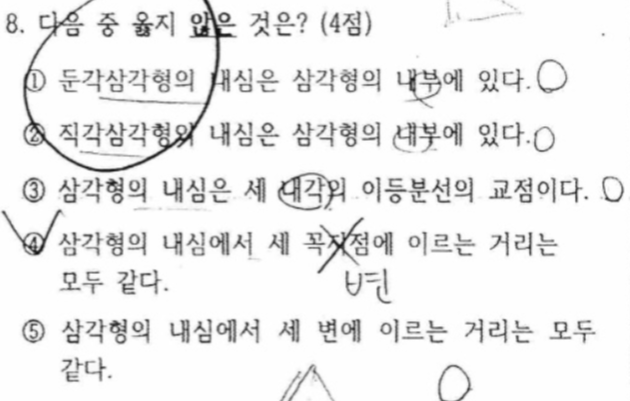 8. 다음 중 옳지 않은 것은? (4점)
① 둔각삼각형의 내심은 삼각형의 내부에 있다.
② 직각삼각형의 내심은 삼각형의 내부에 있다.
③ 삼각형의 내심은 세 내각의 이등분선의 교점이다.
④ 삼각형의 내심에서 세 꼭지점에 이르는 거리는
모두 같다.
변
⑤ 삼각형의 내심에서 세 변에 이르는 거리는 모두
같다.